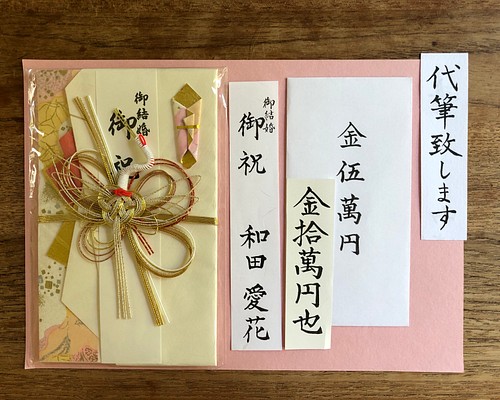 代筆致します
金伍萬円
金拾萬円也
御結婚
御祝 和田愛花
御結婚
御